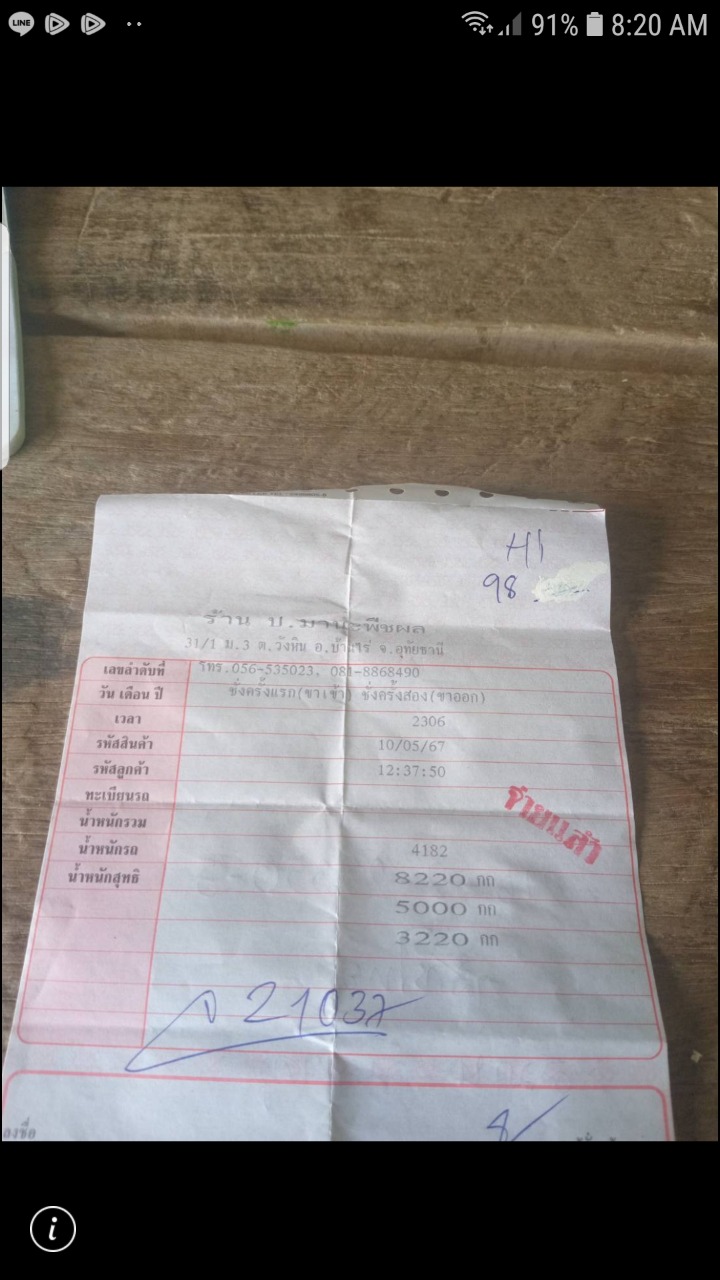 LINE
91% 8:20 AM
H1
98
ร้าน ป.มานะพืชผล
31/1 ม.3 ต.วังหิน อ.บ้านไร่ จ.อุทัยธานี
เลขลำดับที่ โทร.056-535023, 081-8868490
วัน เดือน ปี ชั่งครั้งแรก(ขาเข้า) ชั่งครั้งสอง(ขาออก)
เวลา 2306
รหัสสินค้า 10/05/67
รหัสลูกค้า 12:37:50
ทะเบียนรถ
จ่ายแล้ว
น้ำหนักรวม
น้ำหนักรถ 4182
น้ำหนักสุทธิ 8220 กก
5000 กก
3220 กก
21037